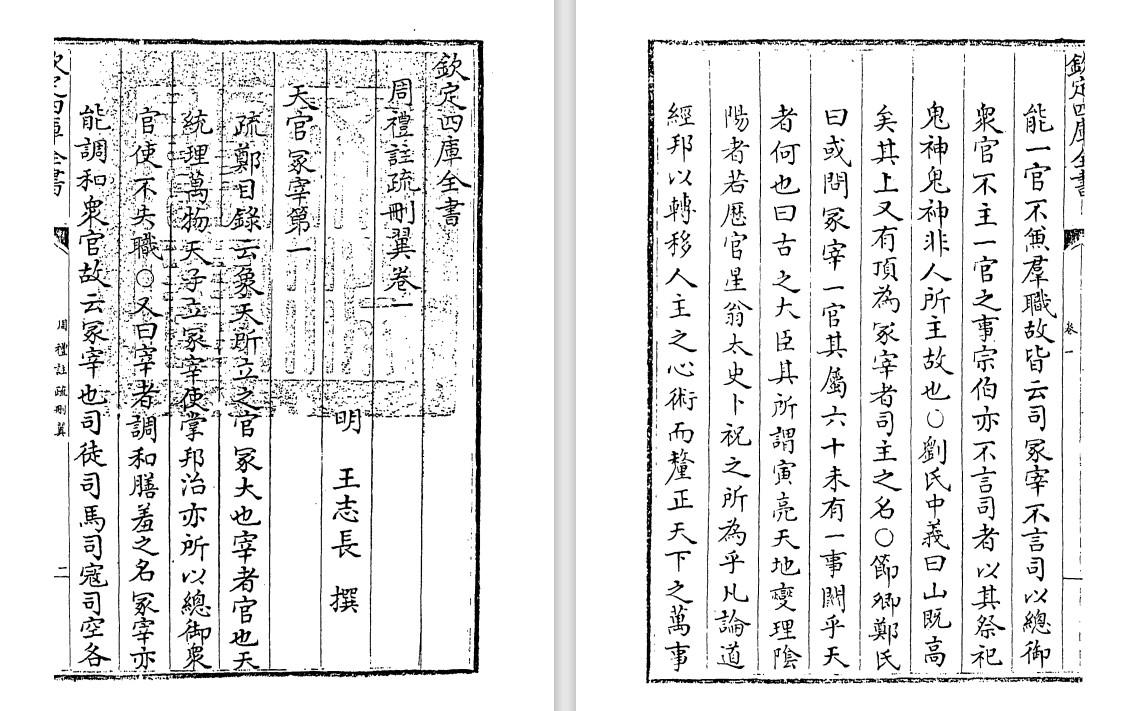 欽定四庫全書
周禮註疏刪翼卷一
明 王志長 撰
天官冢宰第一
疏鄭目錄云象天所立之官冢大也宰者官也天
統理萬物天子立冢宰使掌邦治亦所以總御衆
官使不失職○又曰宰者調和膳羞之名冢宰亦
能調和衆官故云冢宰也司徒司馬司寇司空各
欽定四庫全書 周禮註疏刪翼 二
欽定四庫全書 卷一
能一官不兼羣職故皆云司冢宰不言司以總御
衆官不主一官之事宗伯亦不言司者以其祭祀
鬼神鬼神非人所主故也○劉氏中義曰山既高
矣其上又有頂為冢宰者司主之名○節卿鄭氏
曰或問冢宰一官其屬六十未有一事關乎天
者何也曰古之大臣其所謂寅亮天地燮理陰
陽者若厯官星翁太史卜祝之所為乎凡論道
經邦以轉移人主之心術而釐正天下之萬事